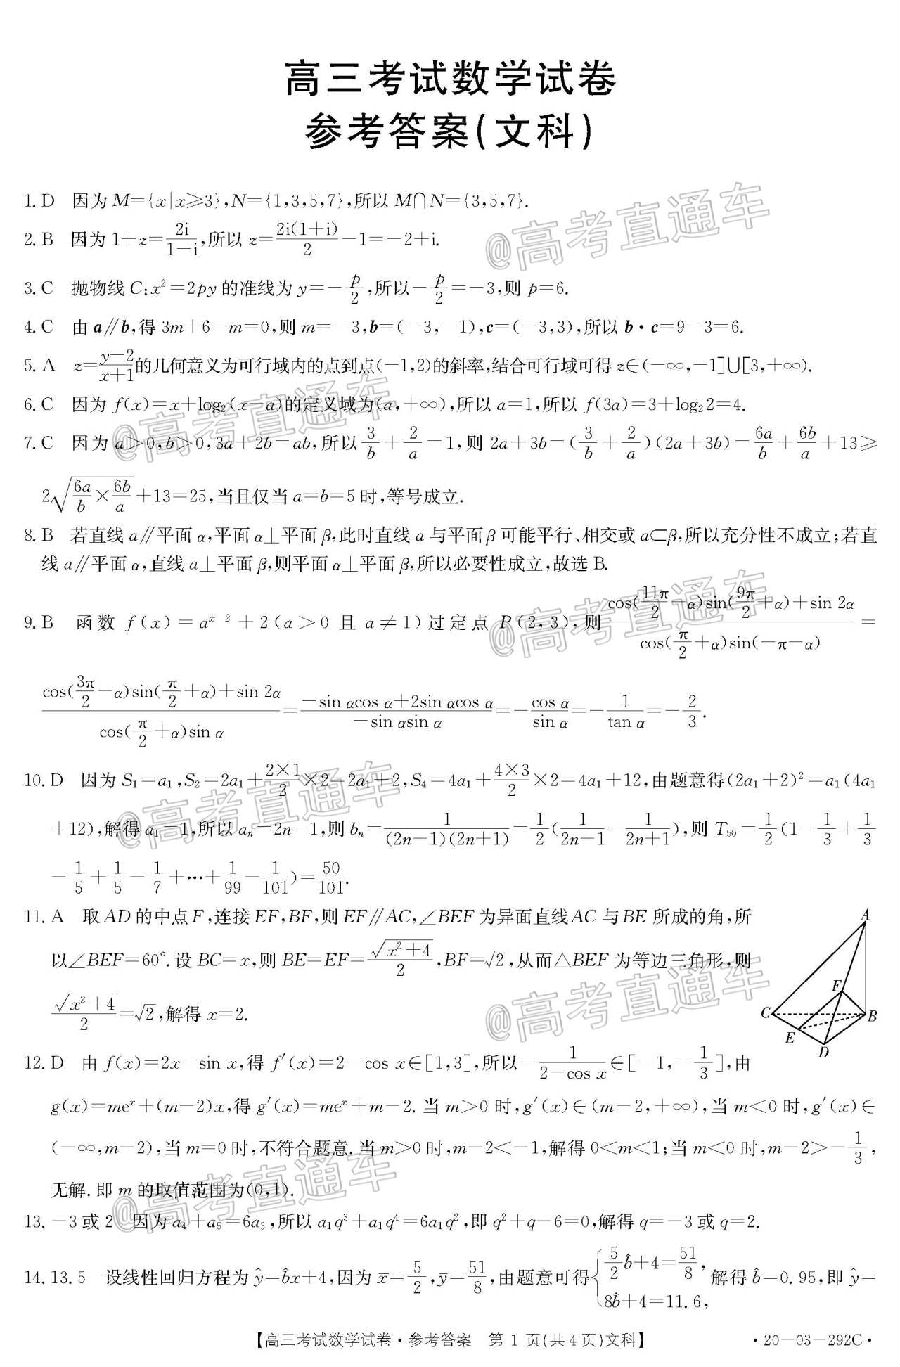 高三考试数学试卷
参考答案(文科)
1. D 因为 M={x|x≥3},N={1,3,5,7},所以 M∩N={3,5,7}.
2. B 因为 1-z=2i/(1-i),所以 z=2i(1+i)/2-1=-2+i.
3. C 抛物线 C:x²=2py 的准线为 y=-p/2,所以-p/2=-3,则 p=6.
4. C 由 a∥b,得 3m+6 m=0,则 m= 3,b=( 3, 1),c=( 3,3),所以 b·c=9 3=6.
5. A z=(y-2)/(x+1)的几何意义为可行域内的点到点(-1,2)的斜率,结合可行域可得 z∈(-∞,-1]∪[3,+∞).
6. C 因为 f(x)=x+log₂(x-a)的定义域为(a,+∞),所以 a=1,所以 f(3a)=3+log₂2=4.
7. C 因为 a>0,b>0,3a+2b=ab,所以 3/b+2/a=1,则 2a+3b=(3/b+2/a)(2a+3b)=6a/b+6b/a+13≥
2√(6a/b×6b/a)+13=25,当且仅当 a=b=5 时,等号成立.
8. B 若直线 a∥平面 α,平面 α⊥平面 β,此时直线 a 与平面 β 可能平行、相交或 a⊂β,所以充分性不成立;若直
线 a∥平面 α,直线 a⊥平面 β,则平面 α⊥平面 β,所以必要性成立,故选 B.
9. B 函数 f(x)=aˣ⁻²+2(a>0 且 a≠1)过定点 P(2,3),则 [cos(11π/2-α)sin(9π/2+α)+sin 2α]/[cos(π/2+α)sin(-π-α)]=
[cos(3π/2-α)sin(π/2+α)+sin 2α]/[cos(π/2+α)sin α]=(-sin αcos α+2sin αcos α)/(-sin αsin α)=-cos α/sin α=-1/tan α=-2/3.
10. D 因为 S₁=a₁,S₂=2a₁+2×1/2×2=2a₁+2,S₄=4a₁+4×3/2×2=4a₁+12,由题意得(2a₁+2)²=a₁(4a₁
+12),解得 a₁=1,所以 aₙ=2n 1,则 bₙ=1/((2n-1)(2n+1))=1/2(1/(2n-1) 1/(2n+1)),则 T₅₀=1/2(1-1/3+1/3
-1/5+1/5-1/7+⋯+1/99-1/101)=50/101.
11. A 取 AD 的中点 F,连接 EF,BF,则 EF∥AC,∠BEF 为异面直线 AC 与 BE 所成的角,所
以∠BEF=60°.设 BC=x,则 BE=EF=√(x²+4)/2,BF=√2,从而△BEF 为等边三角形,则
√(x²+4)/2=√2,解得 x=2.
A
F
C
B
E
D
12. D 由 f(x)=2x sin x,得 f′(x)=2 cos x∈[1,3],所以 1/(2-cos x)∈[ 1, 1/3],由
g(x)=meˣ+(m-2)x,得 g′(x)=meˣ+m-2.当 m>0 时,g′(x)∈(m-2,+∞),当 m<0 时,g′(x)∈
(-∞,m-2),当 m=0 时,不符合题意.当 m>0 时,m-2<-1,解得 0<m<1;当 m<0 时,m-2>-1/3,
无解.即 m 的取值范围为(0,1).
13. -3 或 2 因为 a₄+a₅=6a₃,所以 a₁q³+a₁q⁴=6a₁q²,即 q²+q-6=0,解得 q=-3 或 q=2.
14. 13.5 设线性回归方程为 ŷ=b̂x+4,因为 x̄=5/2,ȳ=51/8,由题意可得{5/2b̂+4=51/8, 8b̂+4=11.6, 解得 b̂=0.95,即 ŷ=
【高三考试数学试卷·参考答案 第 1 页(共 4 页)文科】
·20-03-292C·
@高考直通车
@高考直通车
@高考直通车
@高考直通车
@高考直通车
@高考直通车